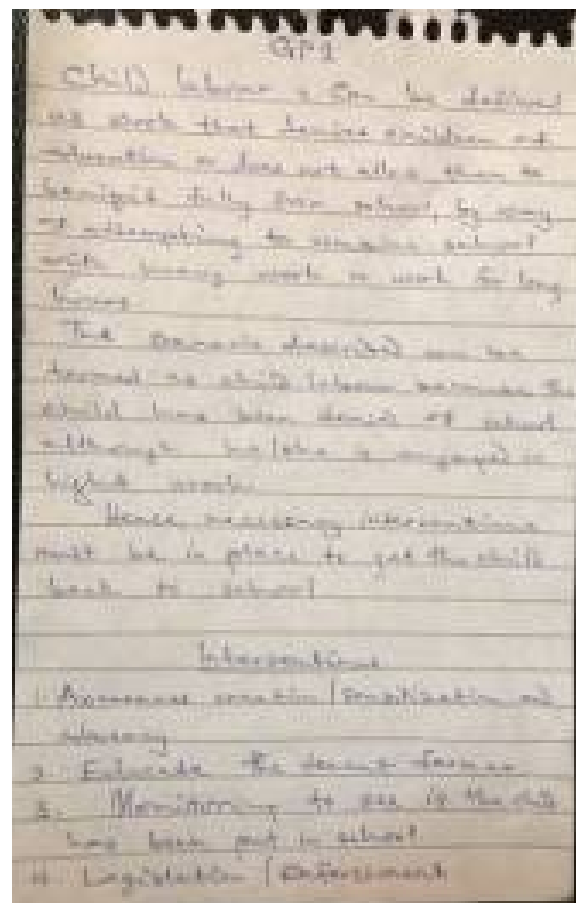 GP1
Child labour can be defined
as work that denies children of
education or does not allow them to
benefit fully from school, by way
of attempting to combine school
with heavy work or work for long
hours
The scenario described can be
termed as child labour because the
child has been denied of school
although he/she is engaged in
light work
Hence, necessary interventions
must be in place to get the child
back to school
Interventions
1. Awareness creation / Sensitization and
advocacy
2. Educate the farmer
3. Monitoring to see if the child
has been put in school
4. Legislation / Enforcement